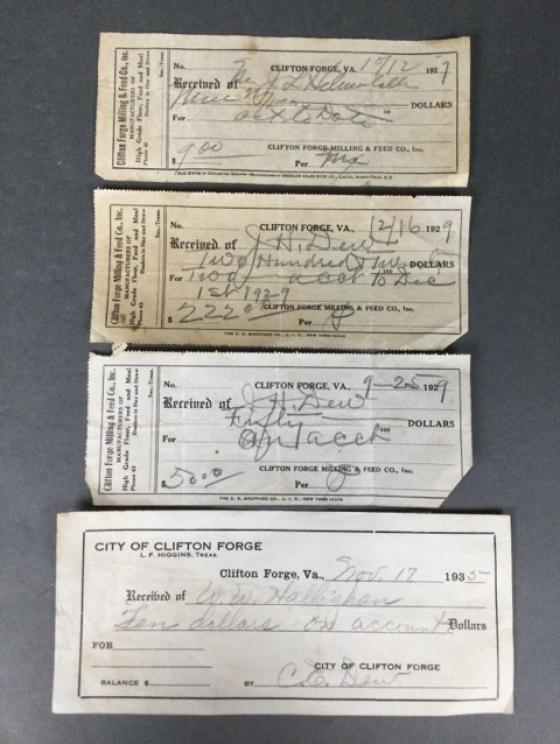 Clifton Forge Milling & Feed Co., Inc.
MANUFACTURERS OF
High Grade Flour, Feed and Meal
Dealers in Hay and Straw
Sec.-Treas.
No. CLIFTON FORGE, VA. 10/12 1927
Received of
Nine DOLLARS
For acct to Date
$ 9.00 CLIFTON FORGE MILLING & FEED CO., Inc.
Per
Clifton Forge Milling & Feed Co., Inc.
MANUFACTURERS OF
High Grade Flour, Feed and Meal
Dealers in Hay and Straw
Phone 62
Sec.-Treas.
No. CLIFTON FORGE, VA., 12/16 1929
Received of J. H. Dew
Two Hundred Twenty DOLLARS
For Two acct to Dec
1st 1929
$ 222.00 CLIFTON FORGE MILLING & FEED CO., Inc.
Per
THE C. E. SHEPPARD CO., L. I. C., NEW YORK
Clifton Forge Milling & Feed Co., Inc.
MANUFACTURERS OF
High Grade Flour, Feed and Meal
Dealers in Hay and Straw
Phone 62
Sec.-Treas.
No. CLIFTON FORGE, VA., 9-25 1929
Received of J. H. Dew
Fifty DOLLARS
For on acct
$ 50.00 CLIFTON FORGE MILLING & FEED CO., Inc.
Per
THE C. E. SHEPPARD CO., L. I. C., NEW YORK
CITY OF CLIFTON FORGE
L. F. HIGGINS, TREAS.
Clifton Forge, Va., Nov. 17 1935
Received of W. W. Hallighan
Ten dollars on account Dollars
FOR
CITY OF CLIFTON FORGE
BALANCE $ BY C. E. Dew